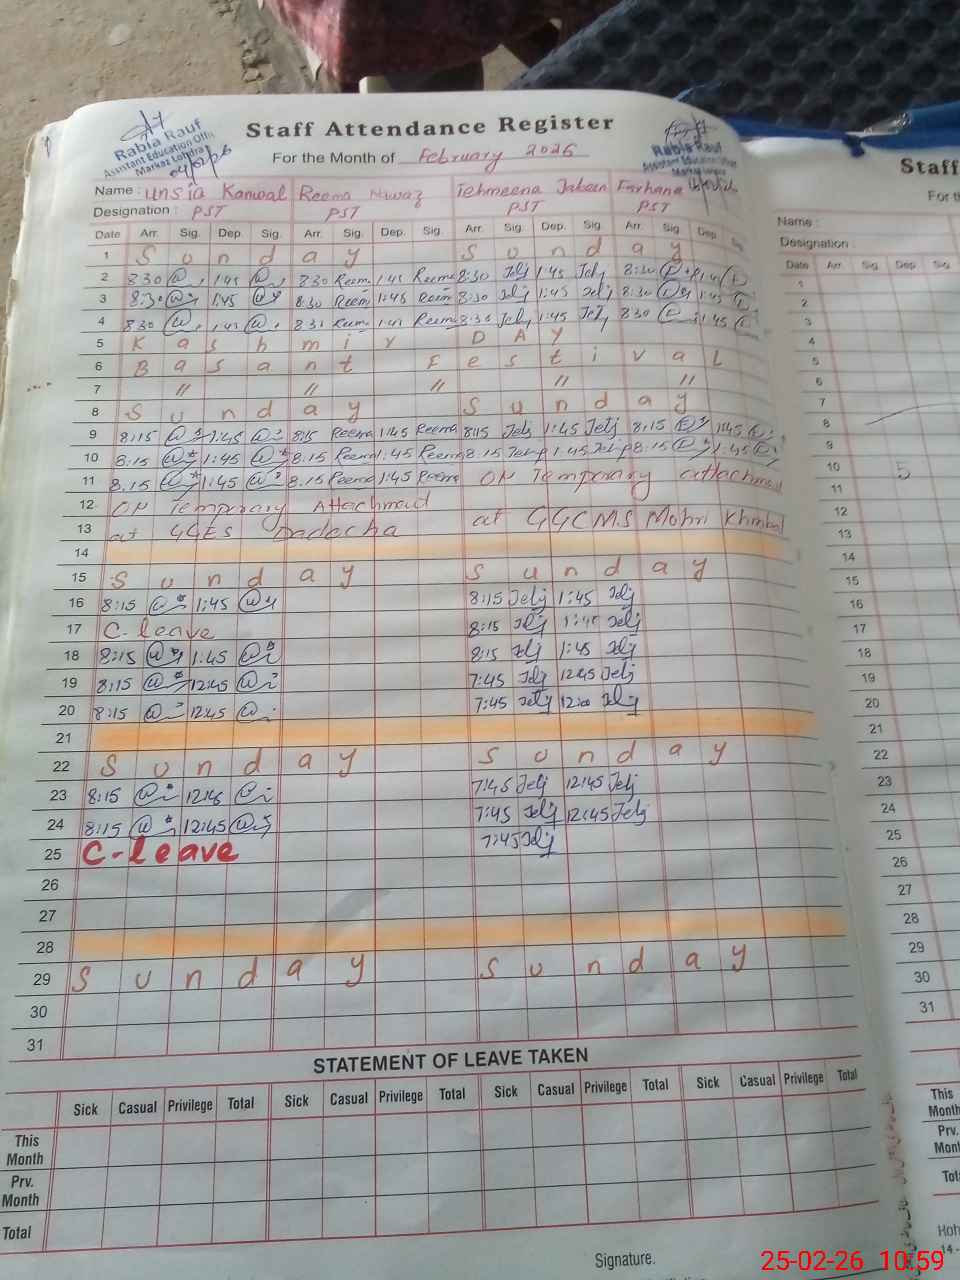 Rabia Rauf
Assistant Education Offi.
Markaz
Staff Attendance Register
For the Month of February 2026
Rabia Rauf
Assistant Education
Markaz
Name : Unsia Kanwal Reema Nawaz Tehmeena Jabeen Farhana
Designation : PST PST PST PST
Date Arr. Sig. Dep. Sig. Arr. Sig. Dep. Sig. Arr. Sig. Dep. Sig. Arr. Sig. Dep. Sig.
1 S u n d a y S u n d a y
2 8:30 1:45 8:30 Reem 1:45 Reem 8:30 Jelj 1:45 Jelj 8:30 1:45
3 8:30 1:45 8:30 Reem 1:45 Reem 8:30 Jelj 1:45 Jelj 8:30 1:45
4 8:30 1:45 8:30 Reem 1:45 Reem 8:30 Jelj 1:45 Jelj 8:30 1:45
5 K a s h m i r D A Y
6 B a s a n t F e s t i v a L
7 " " " " "
8 S u n d a y S u n d a y
9 8:15 1:45 8:15 Reema 1:45 Reema 8:15 Jelj 1:45 Jelj 8:15 1:45
10 8:15 1:45 8:15 Reema 1:45 Reema 8:15 Jelj 1:45 Jelj 8:15 1:45
11 8:15 1:45 8:15 Reema 1:45 Reema ON Temporary attachmed
12 ON Temporary Attachmad
13 at GGES Dadocha at GGCMS Mohri Khmbal
14
15 S u n d a y S u n d a y
16 8:15 1:45 8:15 Jelj 1:45 Jelj
17 C-leave 8:15 Jelj 1:45 Jelj
18 8:15 1:45 8:15 Jelj 1:45 Jelj
19 8:15 12:45 7:45 Jelj 12:45 Jelj
20 8:15 12:45 7:45 Jelj 12:00 Jelj
21
22 S u n d a y S u n d a y
23 8:15 12:45 7:45 Jelj 12:45 Jelj
24 8:15 12:45 7:45 Jelj 12:45 Jelj
25 C-leave 7:45 Jelj
26
27
28
29 S u n d a y S u n d a y
30
31
STATEMENT OF LEAVE TAKEN
Sick Casual Privilege Total Sick Casual Privilege Total Sick Casual Privilege Total Sick Casual Privilege Total
This Month
Prv. Month
Total
Signature.
Staff
For th
Name :
Designation :
Date Arr. Sig. Dep. Sig.
1
2
3
4
5
6
7
8
9
10 5
11
12
13
14
15
16
17
18
19
20
21
22
23
24
25
26
27
28
29
30
31
This Month
Prv. Mont
Tot
Hoh
14-
25-02-26 10:59